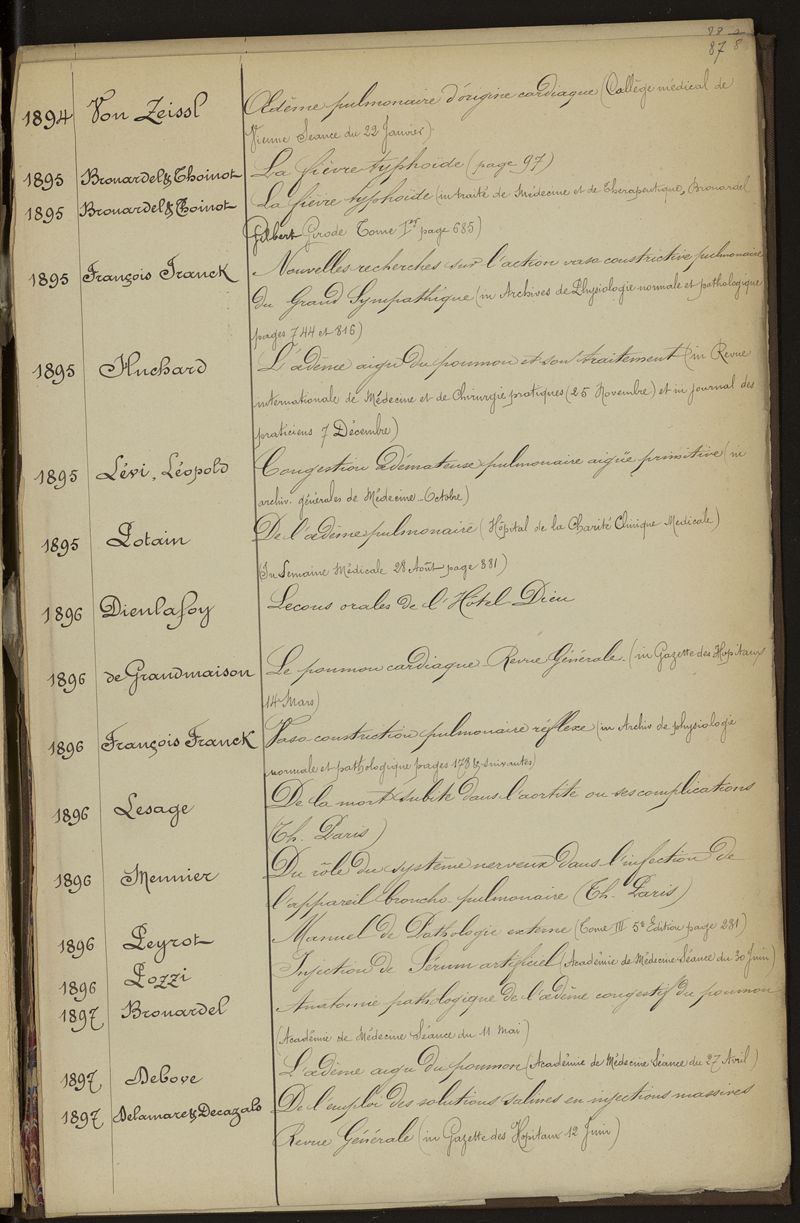 87
1894 Von Zeissl Œdème pulmonaire d'origine cardiaque (Collège médical de
Vienne Séance du 22 Janvier)
1895 Brouardel & Thoinot La fièvre typhoïde (page 97)
1895 Brouardel & Thoinot La fièvre typhoïde (in traité de Médecine et de Thérapeutique, Brouardel
Gilbert Girode Tome 1er page 685)
1895 François Franck Nouvelles recherches sur l'action vaso constrictive pulmonaire
du Grand Sympathique (in Archives de Physiologie normale et pathologique
pages 744 et 816)
1895 Huchard L'œdème aigu du poumon et son traitement (in Revue
internationale de Médecine et de Chirurgie pratiques (25 Novembre) et in journal des
praticiens 7 Décembre)
1895 Lévi, Léopold Congestion œdémateuse pulmonaire aigüe primitive (in
archiv. générales de Médecine - Octobre)
1895 Potain De l'œdème pulmonaire (Hôpital de la Charité Clinique Medicale)
In Semaine Médicale 28 Août page 381)
1896 Dieulafoy Lecons orales de l'Hôtel Dieu
1896 de Grandmaison Le poumon cardiaque - Revue Générale. (in Gazette des Hopitaux
14 Mars)
1896 François Franck Vaso constriction pulmonaire réflexe (in Archiv de physiologie
normale et pathologique pages 178 & suivantes)
1896 Lesage De la mort subite dans l'aortite ou ses complications
(Th. Paris)
1896 Meunier Du rôle du système nerveux dans l'infection de
l'appareil broncho. pulmonaire (Th. Paris)
1896 Peyrot Manuel de Pathologie externe (Tome III 5e Edition page 281)
1896 Pozzi Injection de Sérum artificiel (Académie de Médecine Séance du 30 Juin)
1897 Brouardel Anatomie pathologique de l'œdème congestif du poumon
(Académie de Médecine Séance du 11 Mai)
1897 Debove L'œdème aigu du poumon (Académie de Médecine Séance du 27 Avril)
1897 Delamare & Decazals De l'emploi des solutions salines en injections massives
Revue Générale (in Gazette des Hopitaux 12 Juin)